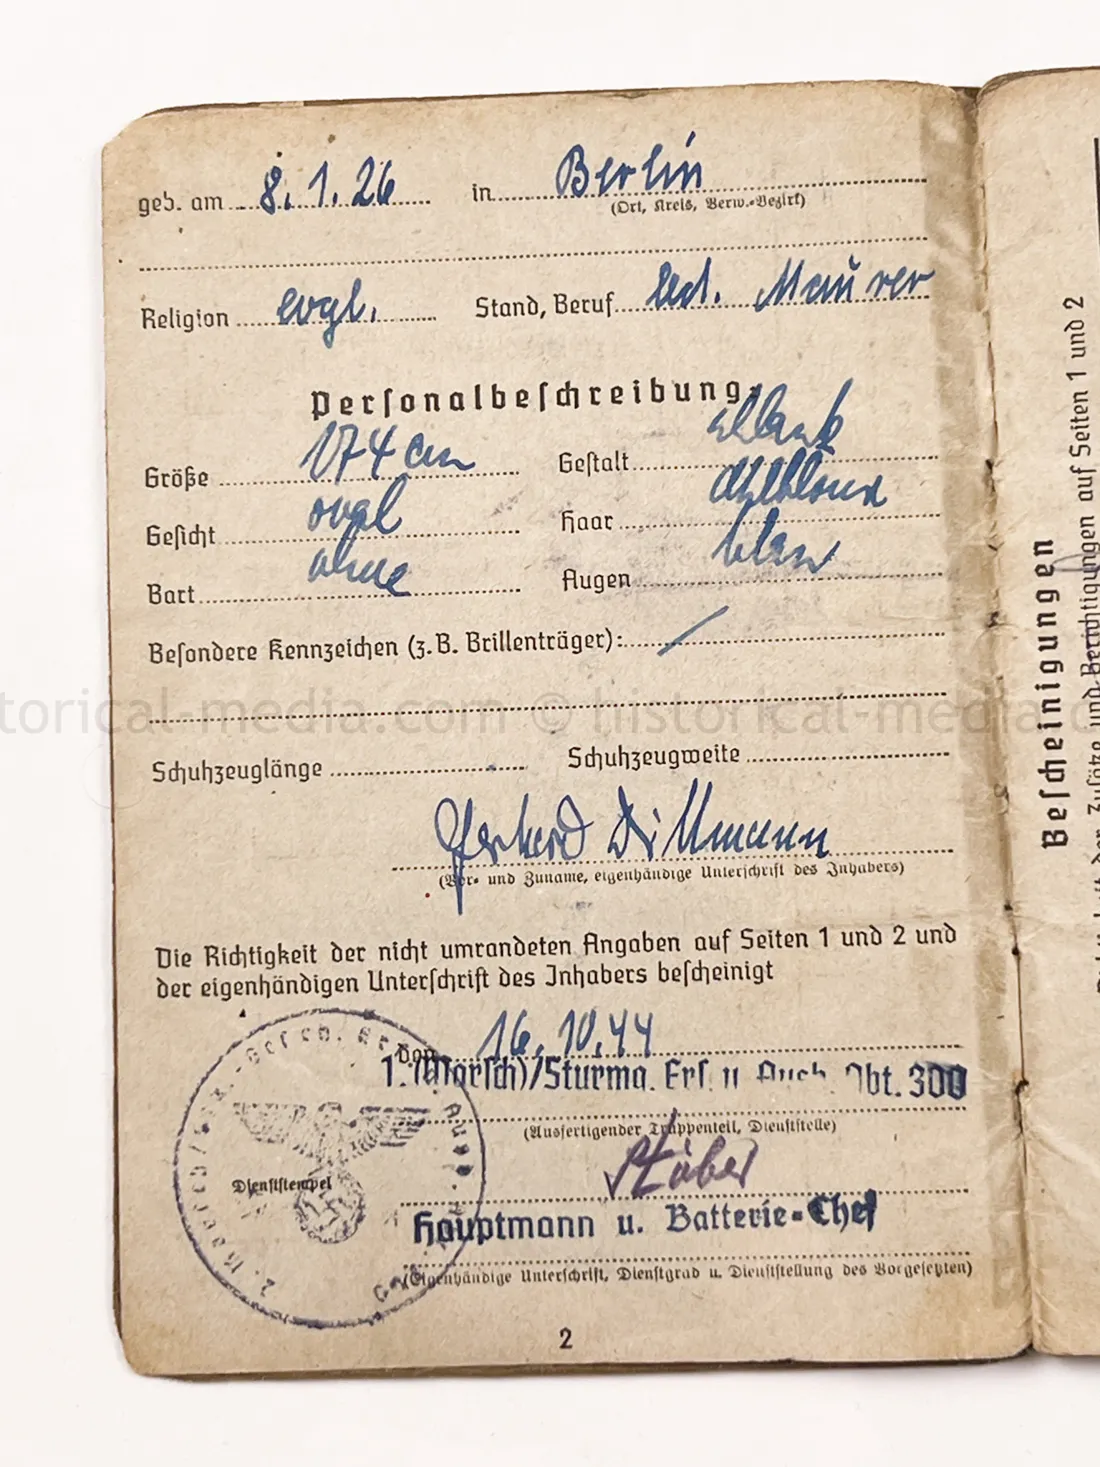 geb. am 8.1.26 in Berlin
(Ort, Kreis, Verw.-Bezirk)
Religion evgl. Stand, Beruf led. Maurer
Personalbeschreibung
Größe 174 cm Gestalt schlank
Gesicht oval Haar dklblond
Bart ohne Augen blau
Besondere Kennzeichen (z. B. Brillenträger): /
historical-media.com © historical-media
Schuhzeuglänge Schuhzeugweite
Gerhard Dillmann
(Vor- und Zuname, eigenhändige Unterschrift des Inhabers)
Die Richtigkeit der nicht umrandeten Angaben auf Seiten 1 und 2 und
der eigenhändigen Unterschrift des Inhabers bescheinigt
den 16.10.44
1. (Marsch)/Sturmg. Ers. u. Ausb. Abt. 300
(Ausfertigender Truppenteil, Dienststelle)
Dienststempel
Stüber
Hauptmann u. Batterie-Chef
(Eigenhändige Unterschrift, Dienstgrad u. Dienststellung des Vorgesetzten)
2
Bescheinigungen
der Zusätze und Berichtigungen auf Seiten 1 und 2